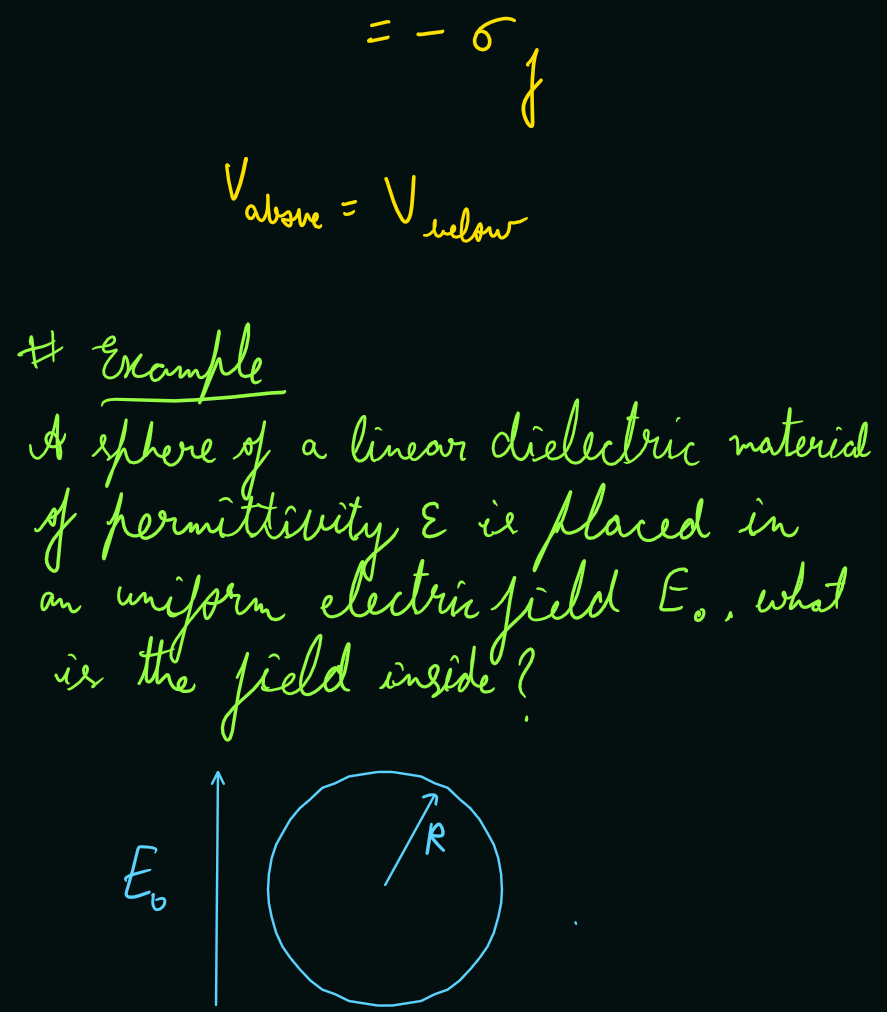 = - σ_f
V_above = V_below
# Example
A sphere of a linear dielectric material
of permittivity ε is placed in
an uniform electric field E₀, what
is the field inside?
R
E₀